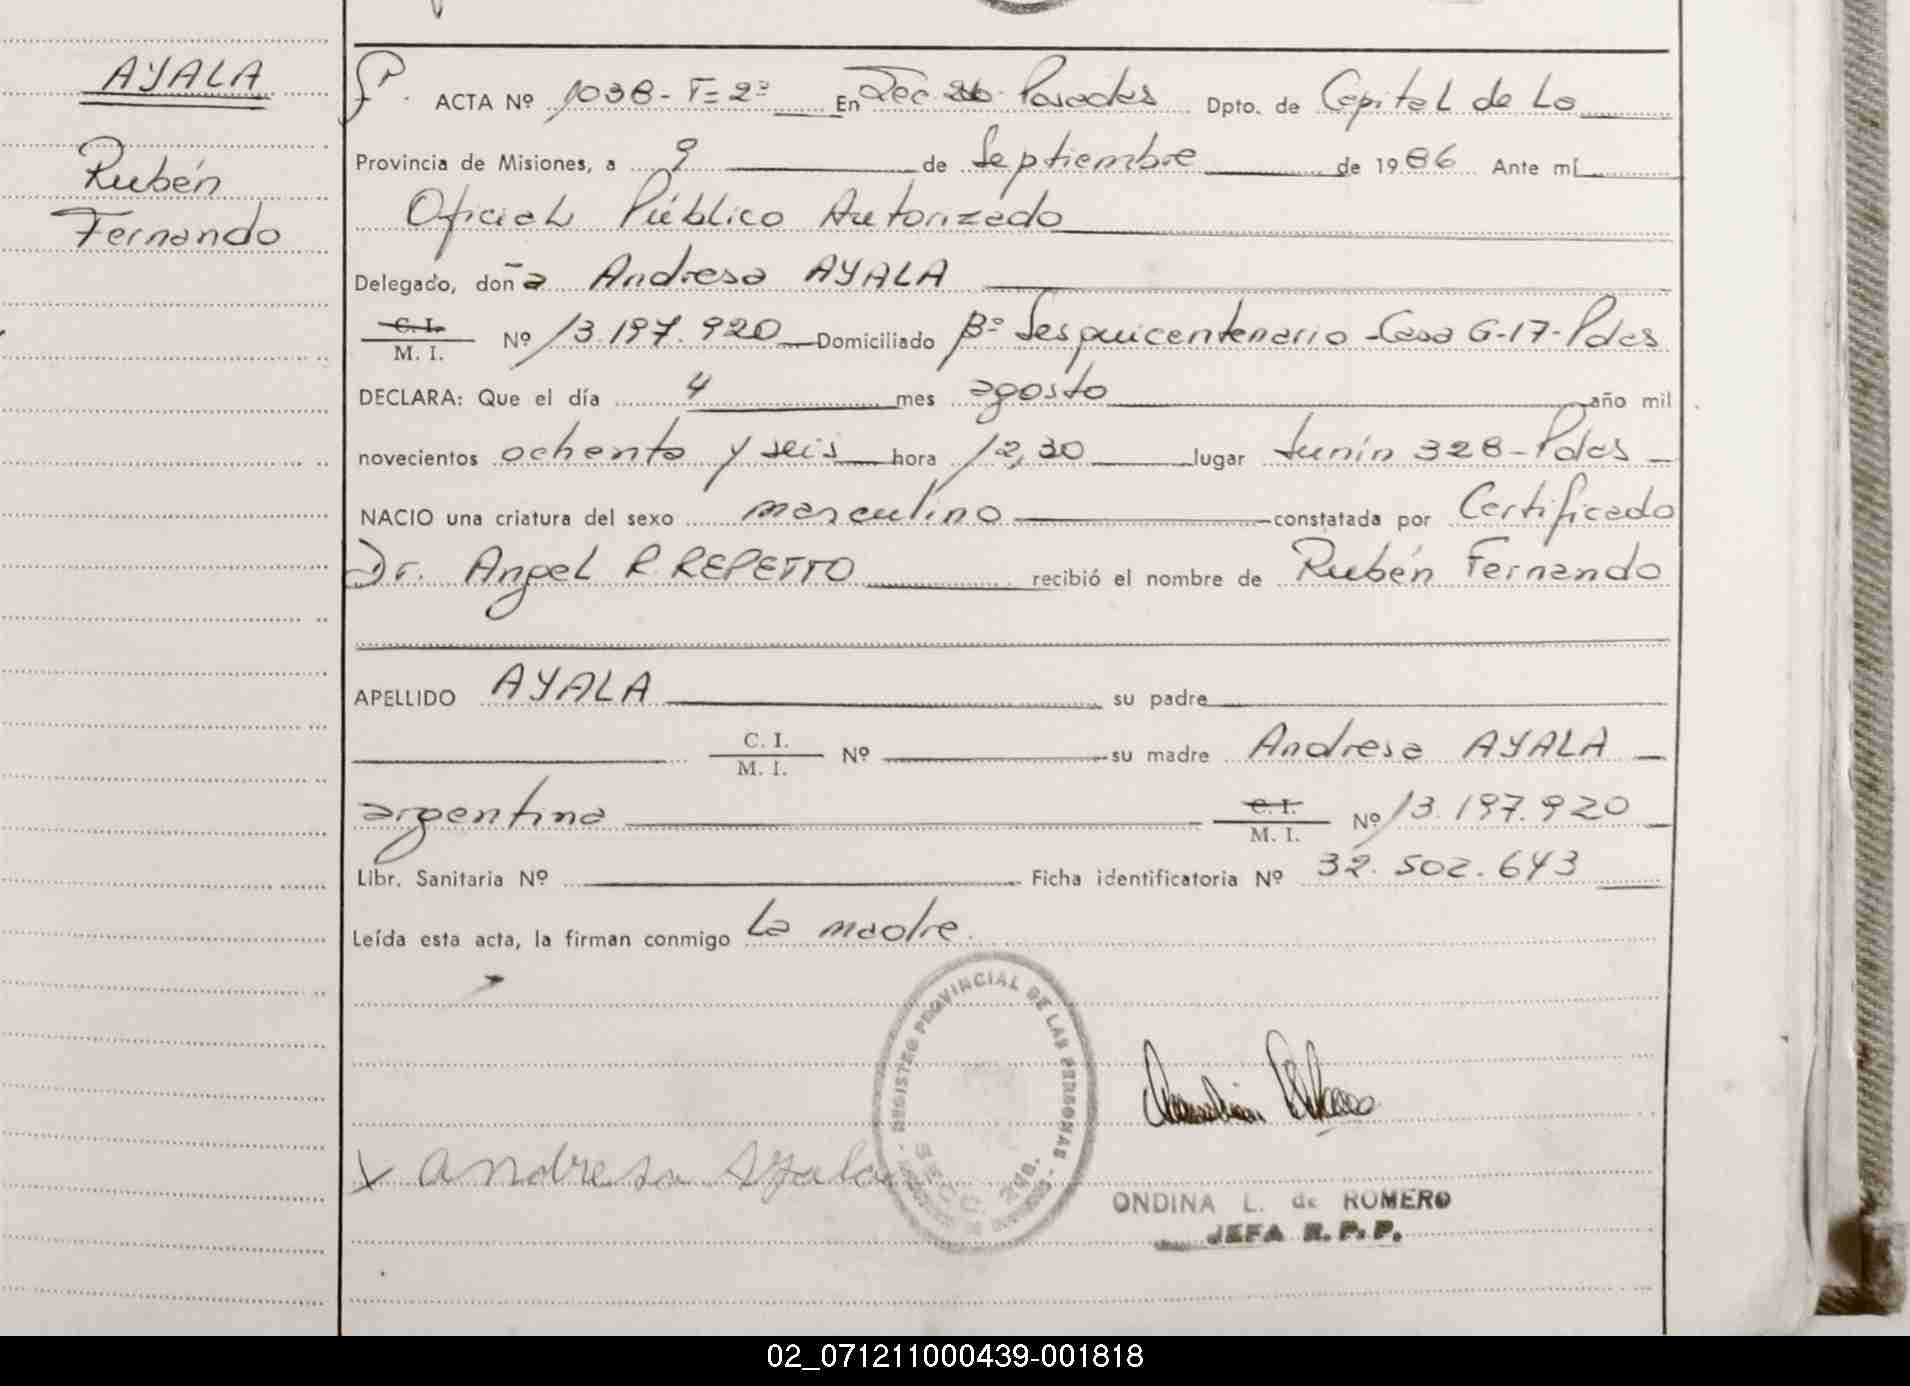 AYALA
Rubén
Fernando
ACTA Nº 1038 - T= 2º En Sec. 2da. Posadas Dpto. de Capital de La
Provincia de Misiones, a 9 de Septiembre de 1986 Ante mí
Oficial Público Autorizado
Delegado, doña Andresa AYALA
C. I.
M. I. Nº 13.197.920 Domiciliado Bº Sesquicentenario - Casa G-17 - Pdas
DECLARA: Que el día 4 mes agosto año mil
novecientos ochenta y seis hora 12,30 lugar Junín 328 - Pdas
NACIO una criatura del sexo masculino constatada por Certificado
Dr. Angel R REPETTO recibió el nombre de Rubén Fernando
APELLIDO AYALA su padre
C. I.
M. I. Nº su madre Andresa AYALA
argentina C. I.
M. I. Nº 13.197.920
Libr. Sanitaria Nº Ficha identificatoria Nº 32.502.643
Leída esta acta, la firman conmigo La madre.
REGISTRO PROVINCIAL DE LAS PERSONAS
SECC. 2da.
x Andresa Ayala
ONDINA L. de ROMERO
JEFA R. P. P.
02_071211000439-001818